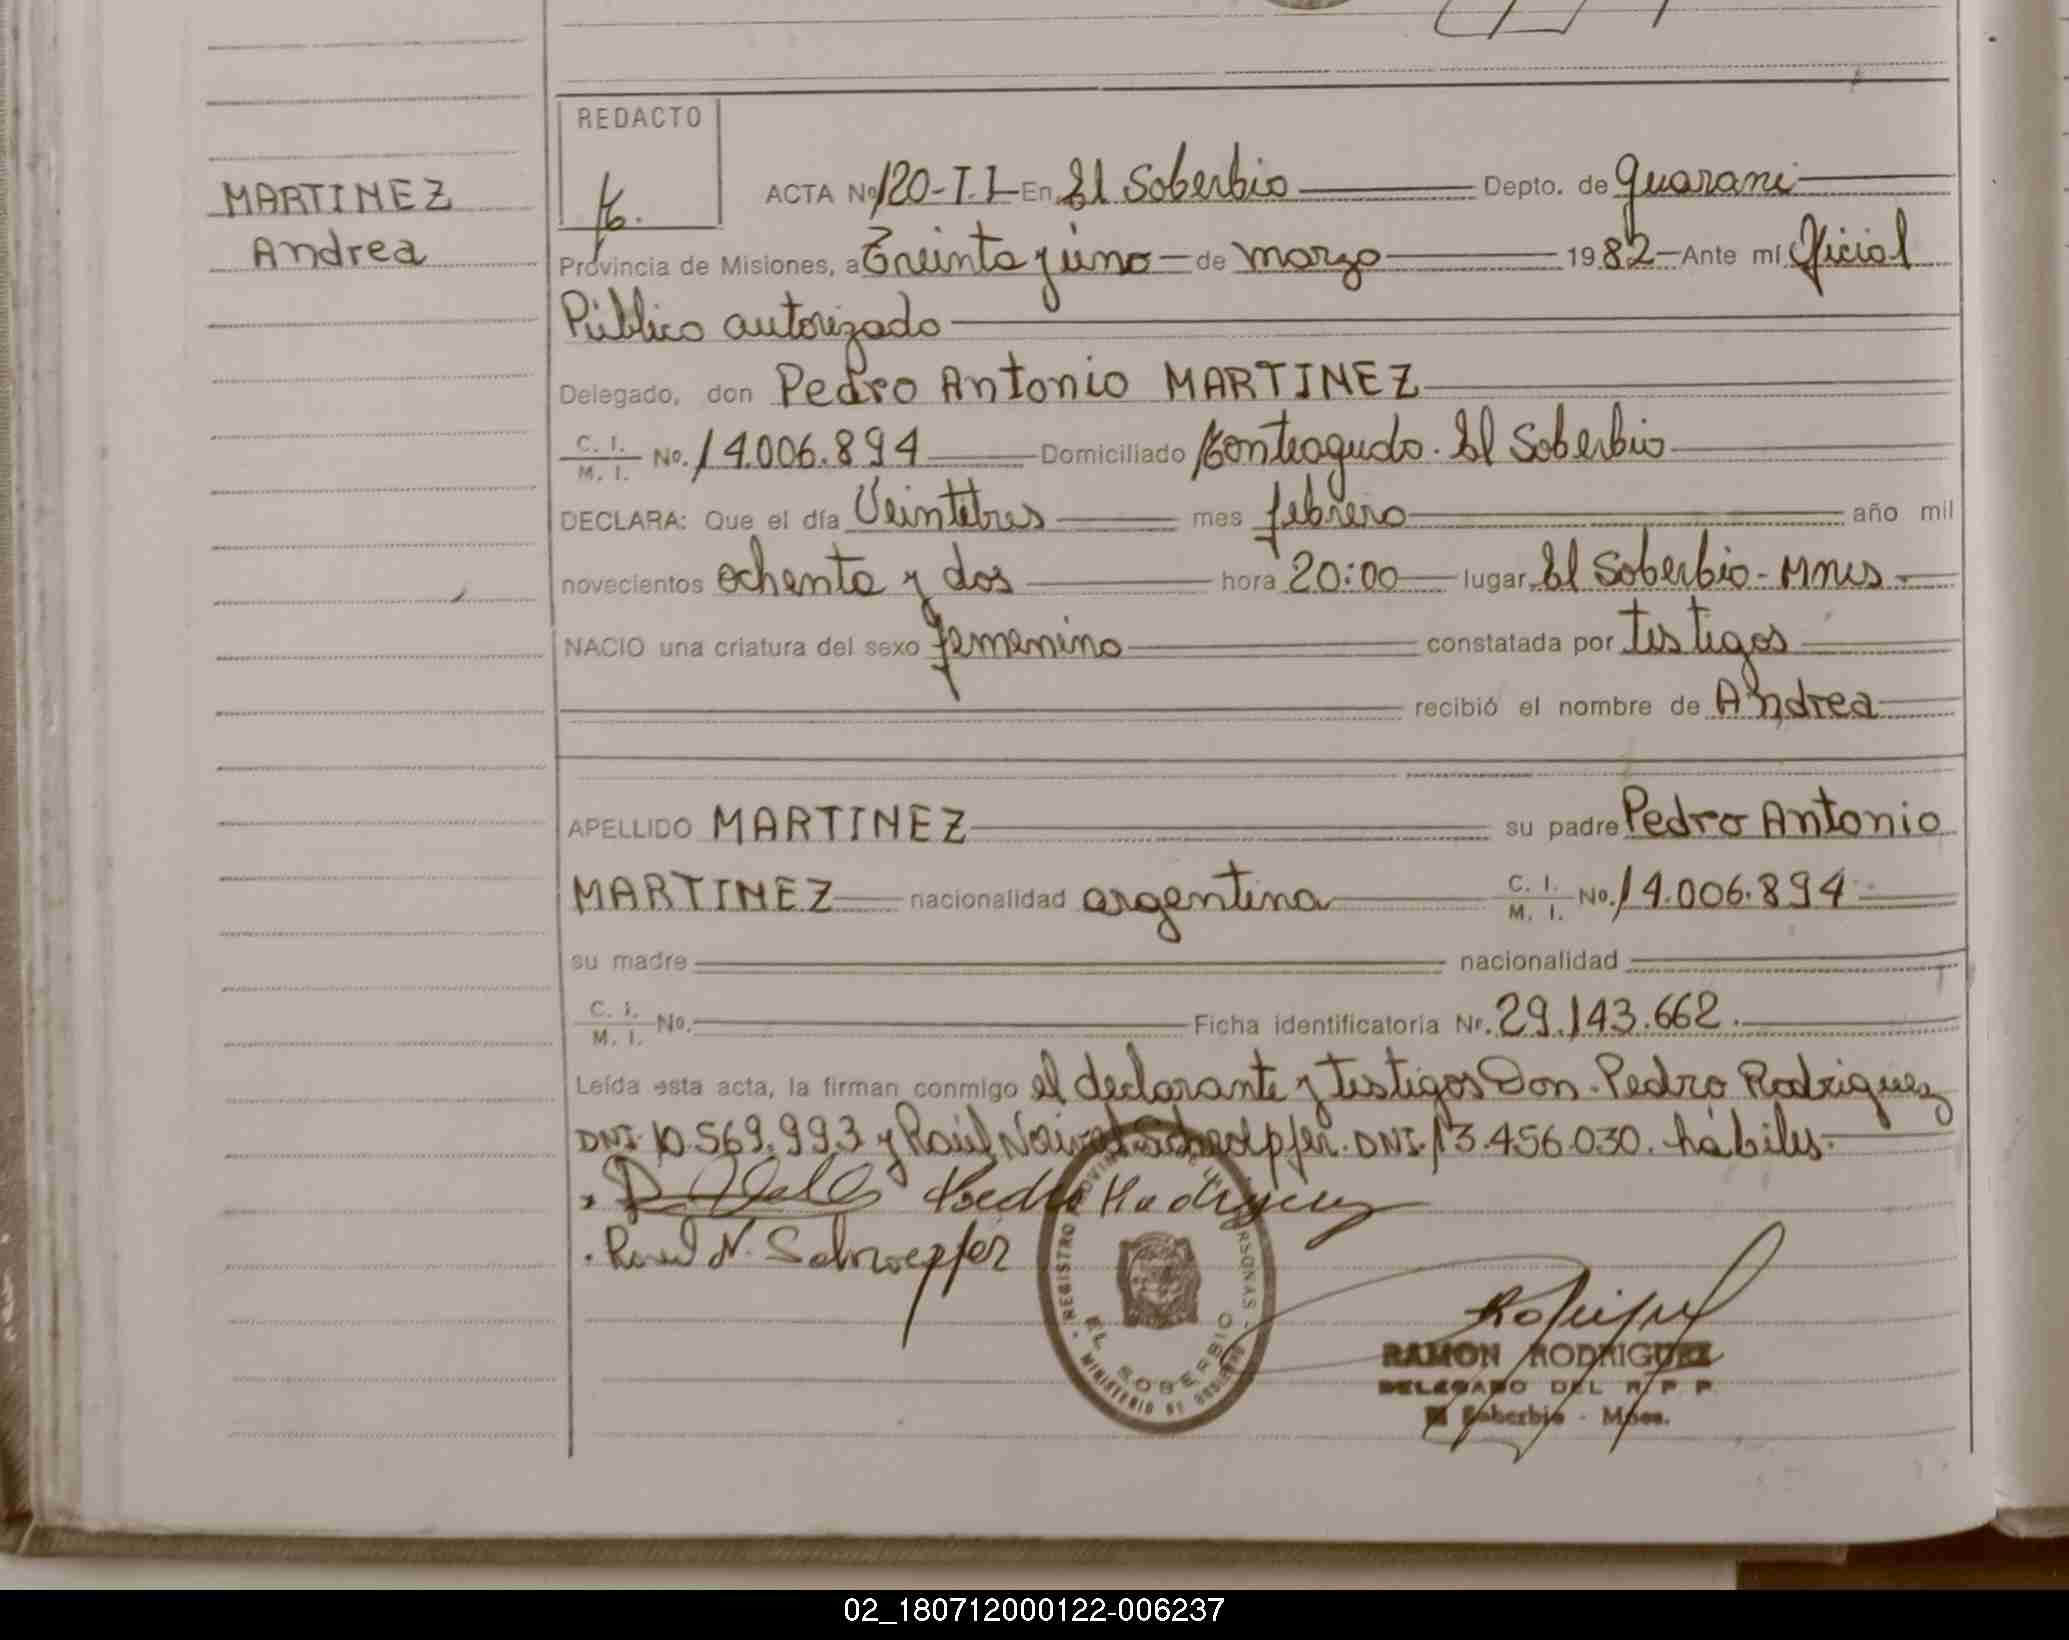 MARTINEZ
Andrea
REDACTO
ACTA Nº 120-T.I En El Soberbio Depto. de Guarani
Provincia de Misiones, a Treinta y uno de marzo 1982 Ante mí Oficial
Público autorizado
Delegado, don Pedro Antonio MARTINEZ
C. I.
M. I. No. 14.006.894 Domiciliado Monteagudo. El Soberbio
DECLARA: Que el día Veintitres mes febrero año mil
novecientos ochenta y dos hora 20:00 lugar El Soberbio - Mnes
NACIO una criatura del sexo femenino constatada por testigos
recibió el nombre de Andrea
APELLIDO MARTINEZ su padre Pedro Antonio
MARTINEZ nacionalidad argentina C. I. M. I. No. 14.006.894
su madre nacionalidad
C. I.
M. I. No. Ficha identificatoria Nº. 29.143.662.
Leída esta acta, la firman conmigo el declarante y testigos Don. Pedro Rodriguez
DNI. 10.569.993 y Raúl Schoepfer. DNI. 13.456.030. hábiles.
Pedro Rodriguez
Raul N. Schroepfer
REGISTRO PROVINCIAL DE LAS PERSONAS
EL SOBERBIO
MINISTERIO DE GOBIERNO
RAMON RODRIGUEZ
DELEGADO DEL R. P. P.
El Soberbio - Mnes.
02_180712000122-006237